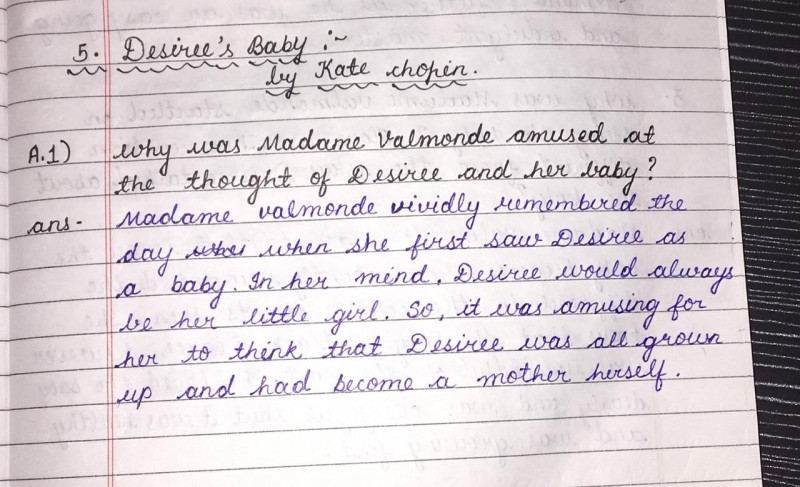 5. Desiree's Baby :~
by Kate chopin.
A.1) why was Madame Valmonde amused at
the thought of Desiree and her baby?
ans- Madame valmonde vividly remembered the
day when she first saw Desiree as
a baby. In her mind, Desiree would always
be her little girl. So, it was amusing for
her to think that Desiree was all grown
up and had become a mother herself.